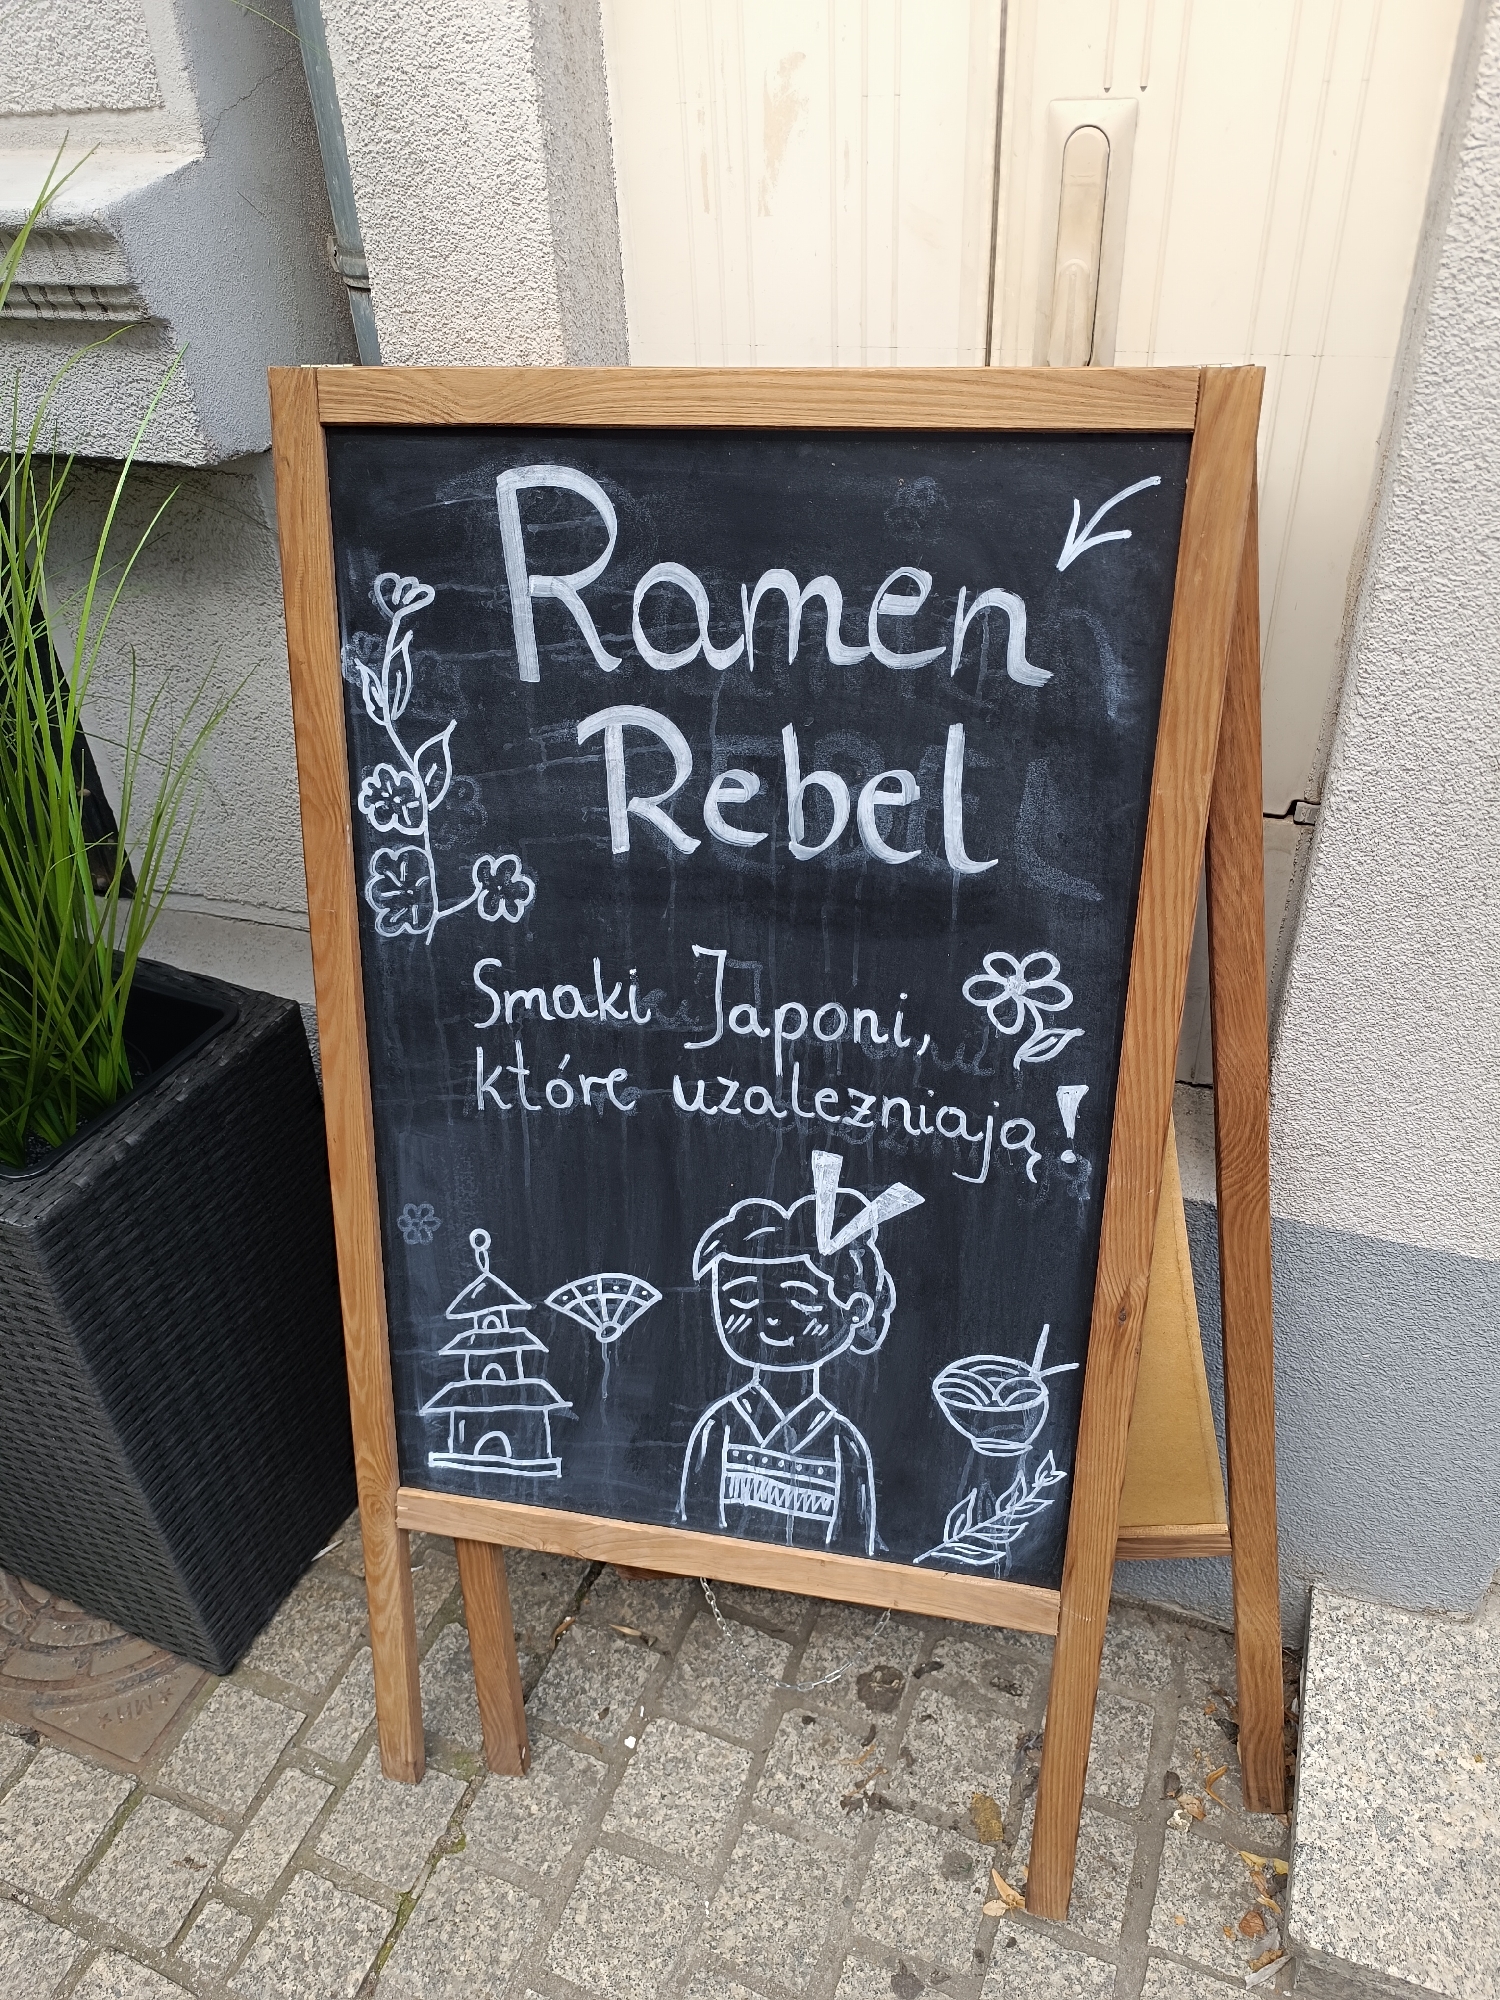 Ramen
Rebel
Smaki Japoni,
które uzalezniają!